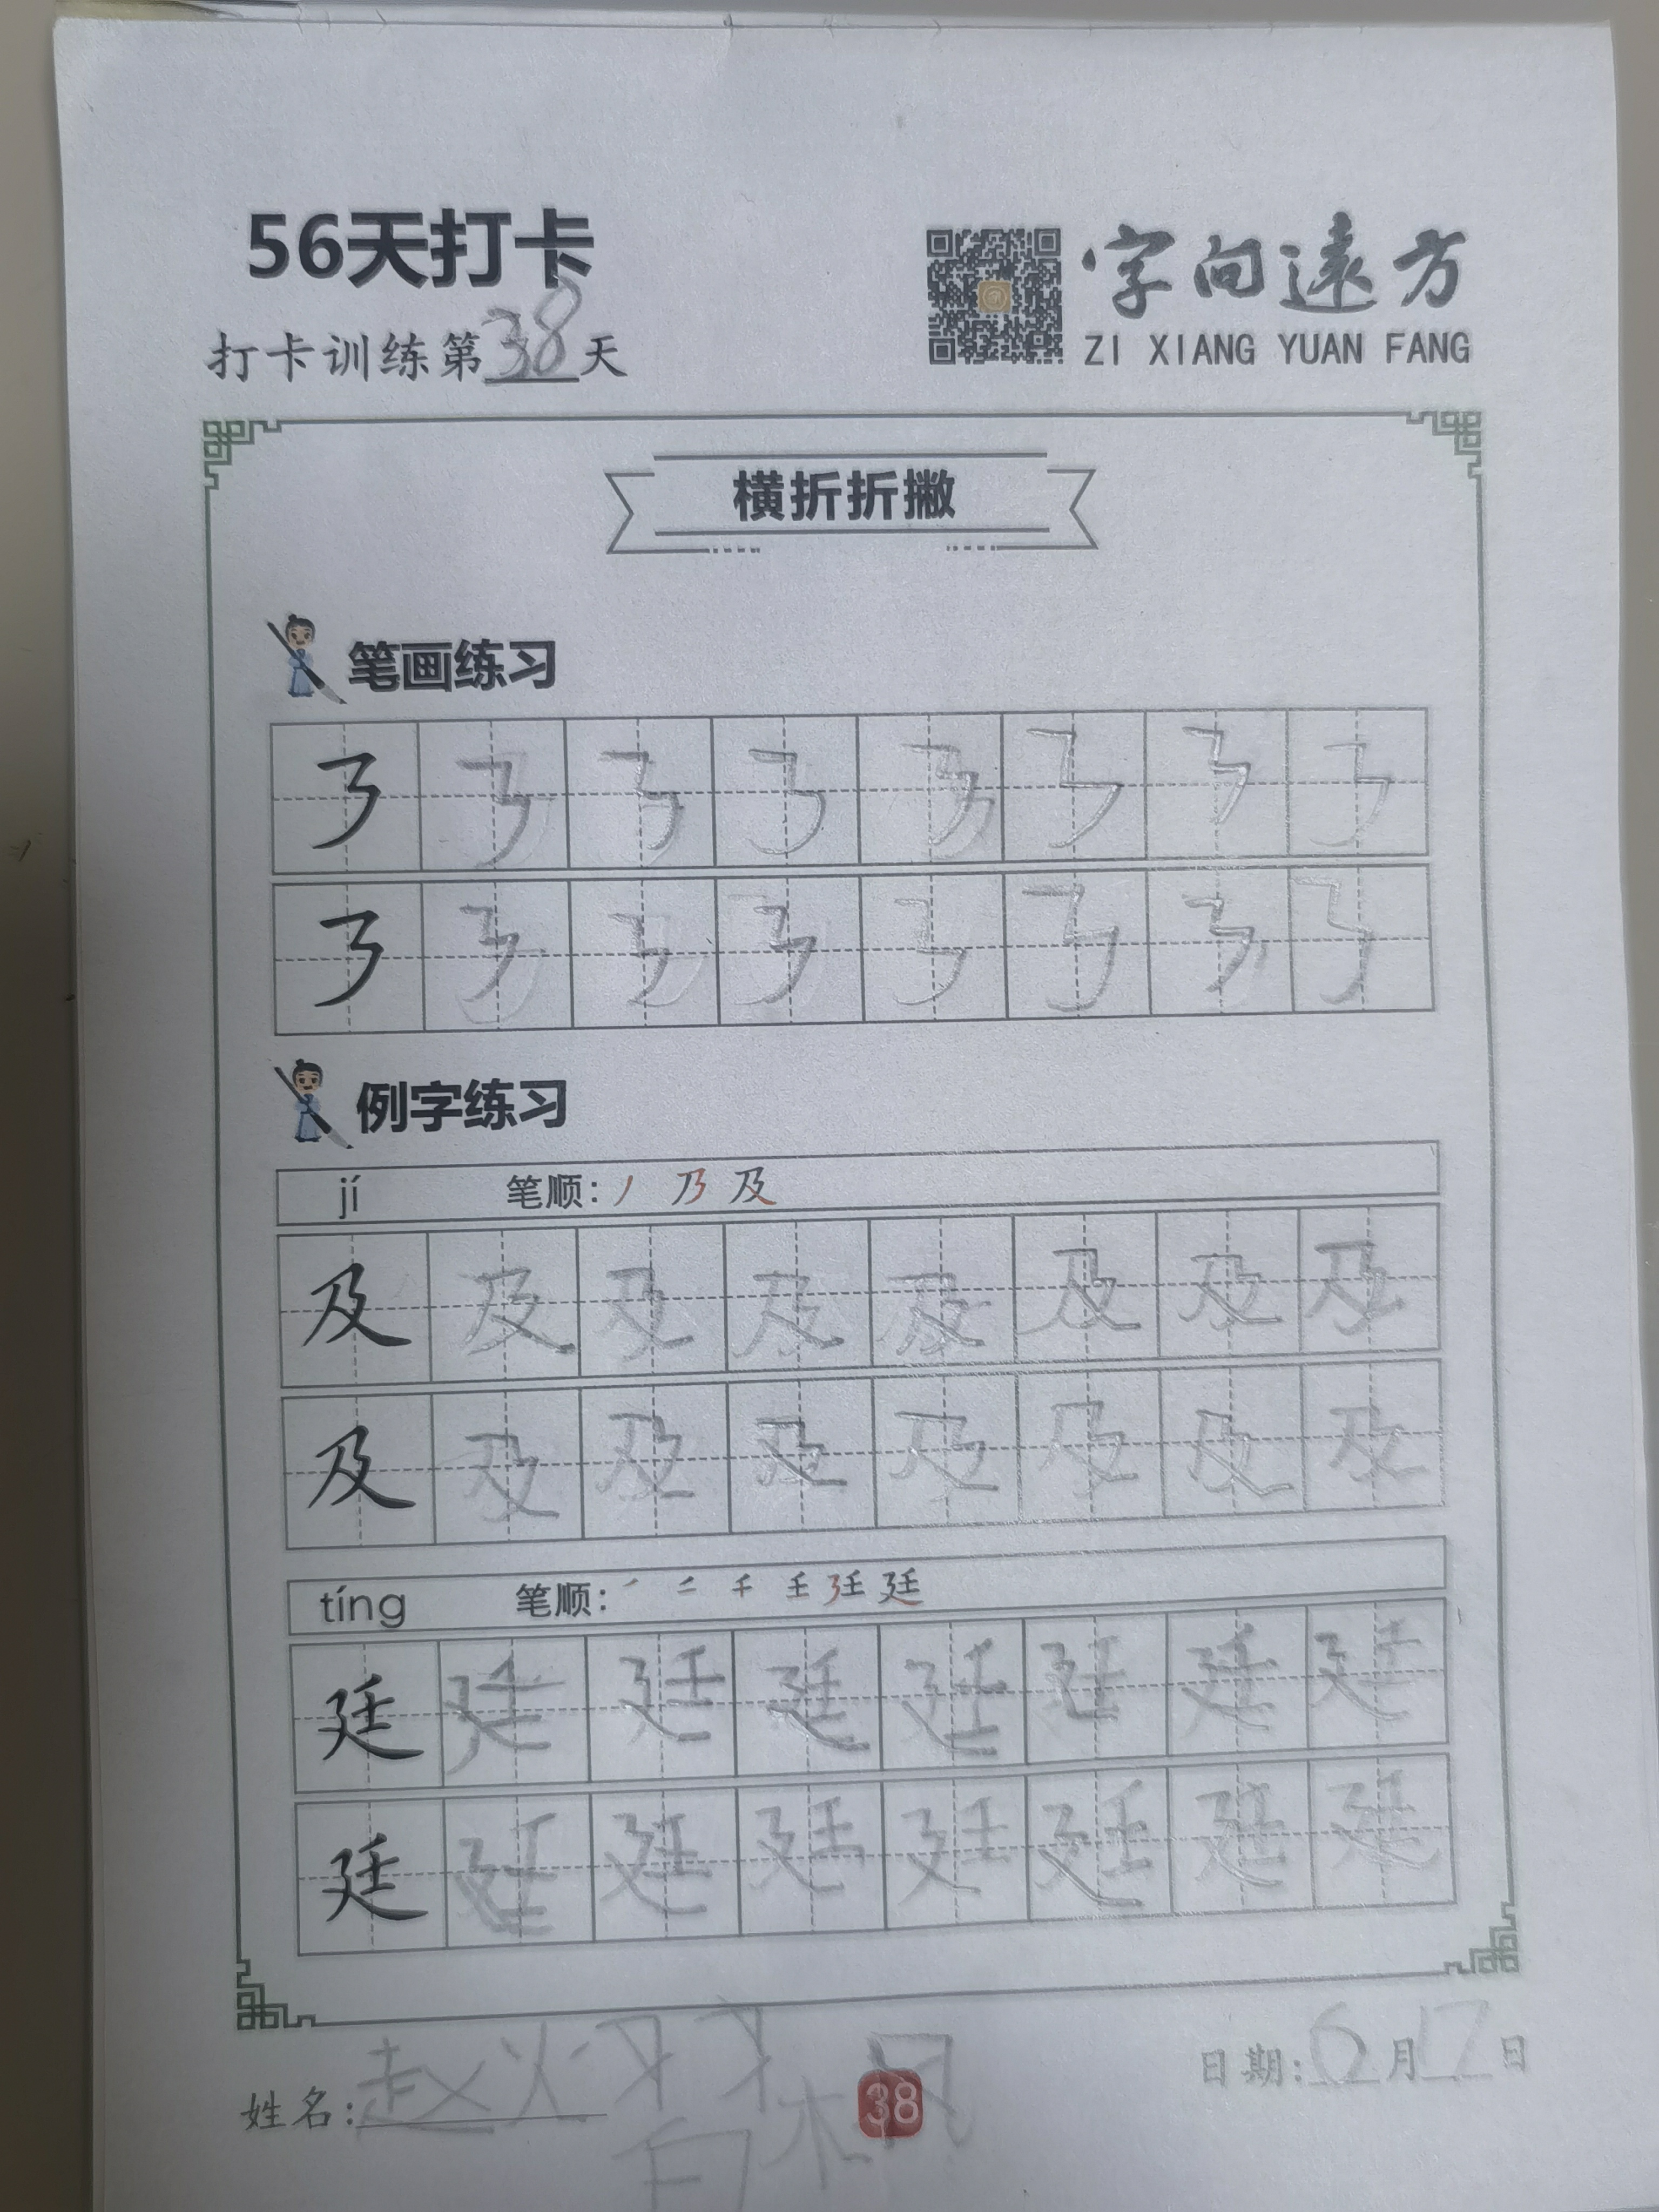 56天打卡
字向遠方
ZI XIANG YUAN FANG
打卡训练第38天
横折折撇
笔画练习
例字练习
jí 笔顺: 丿 乃 及
及 及 及 及 及 及 及 及
及 及 及 及 及 及 及 及
tíng 笔顺: 廷
廷 廷 廷 廷 廷 廷 廷 廷
廷 廷 廷 廷 廷 廷 廷 廷
姓名: 赵
日期: 6月17日
38